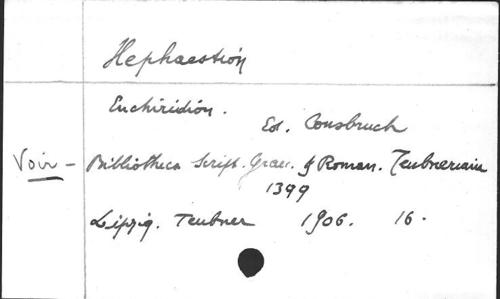 Hephaestión
Enchiridión.
Ed. Consbruch
Voir - Bibliotheca Script. Graec. & Roman. Teubneriana
1399
Leipzig. Teubner 1906. 16.